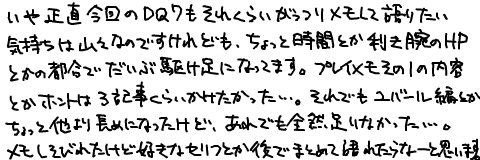 いや正直今回のDQ7もそれくらいがっつりメモして語りたい
気持ちは山々なのですけれども、ちょっと時間とか利き腕のHP
とかの都合でだいぶ駆け足になってます。プレイメモその1の内容
とかホントは3記事くらいかけたかった…。それでもユバール編とか
ちょっと他より長めになったけど、あれでも全然足りなかった…。
メモしそびれたけど好きなセリフとか後でまとめて語れたらなーと思います